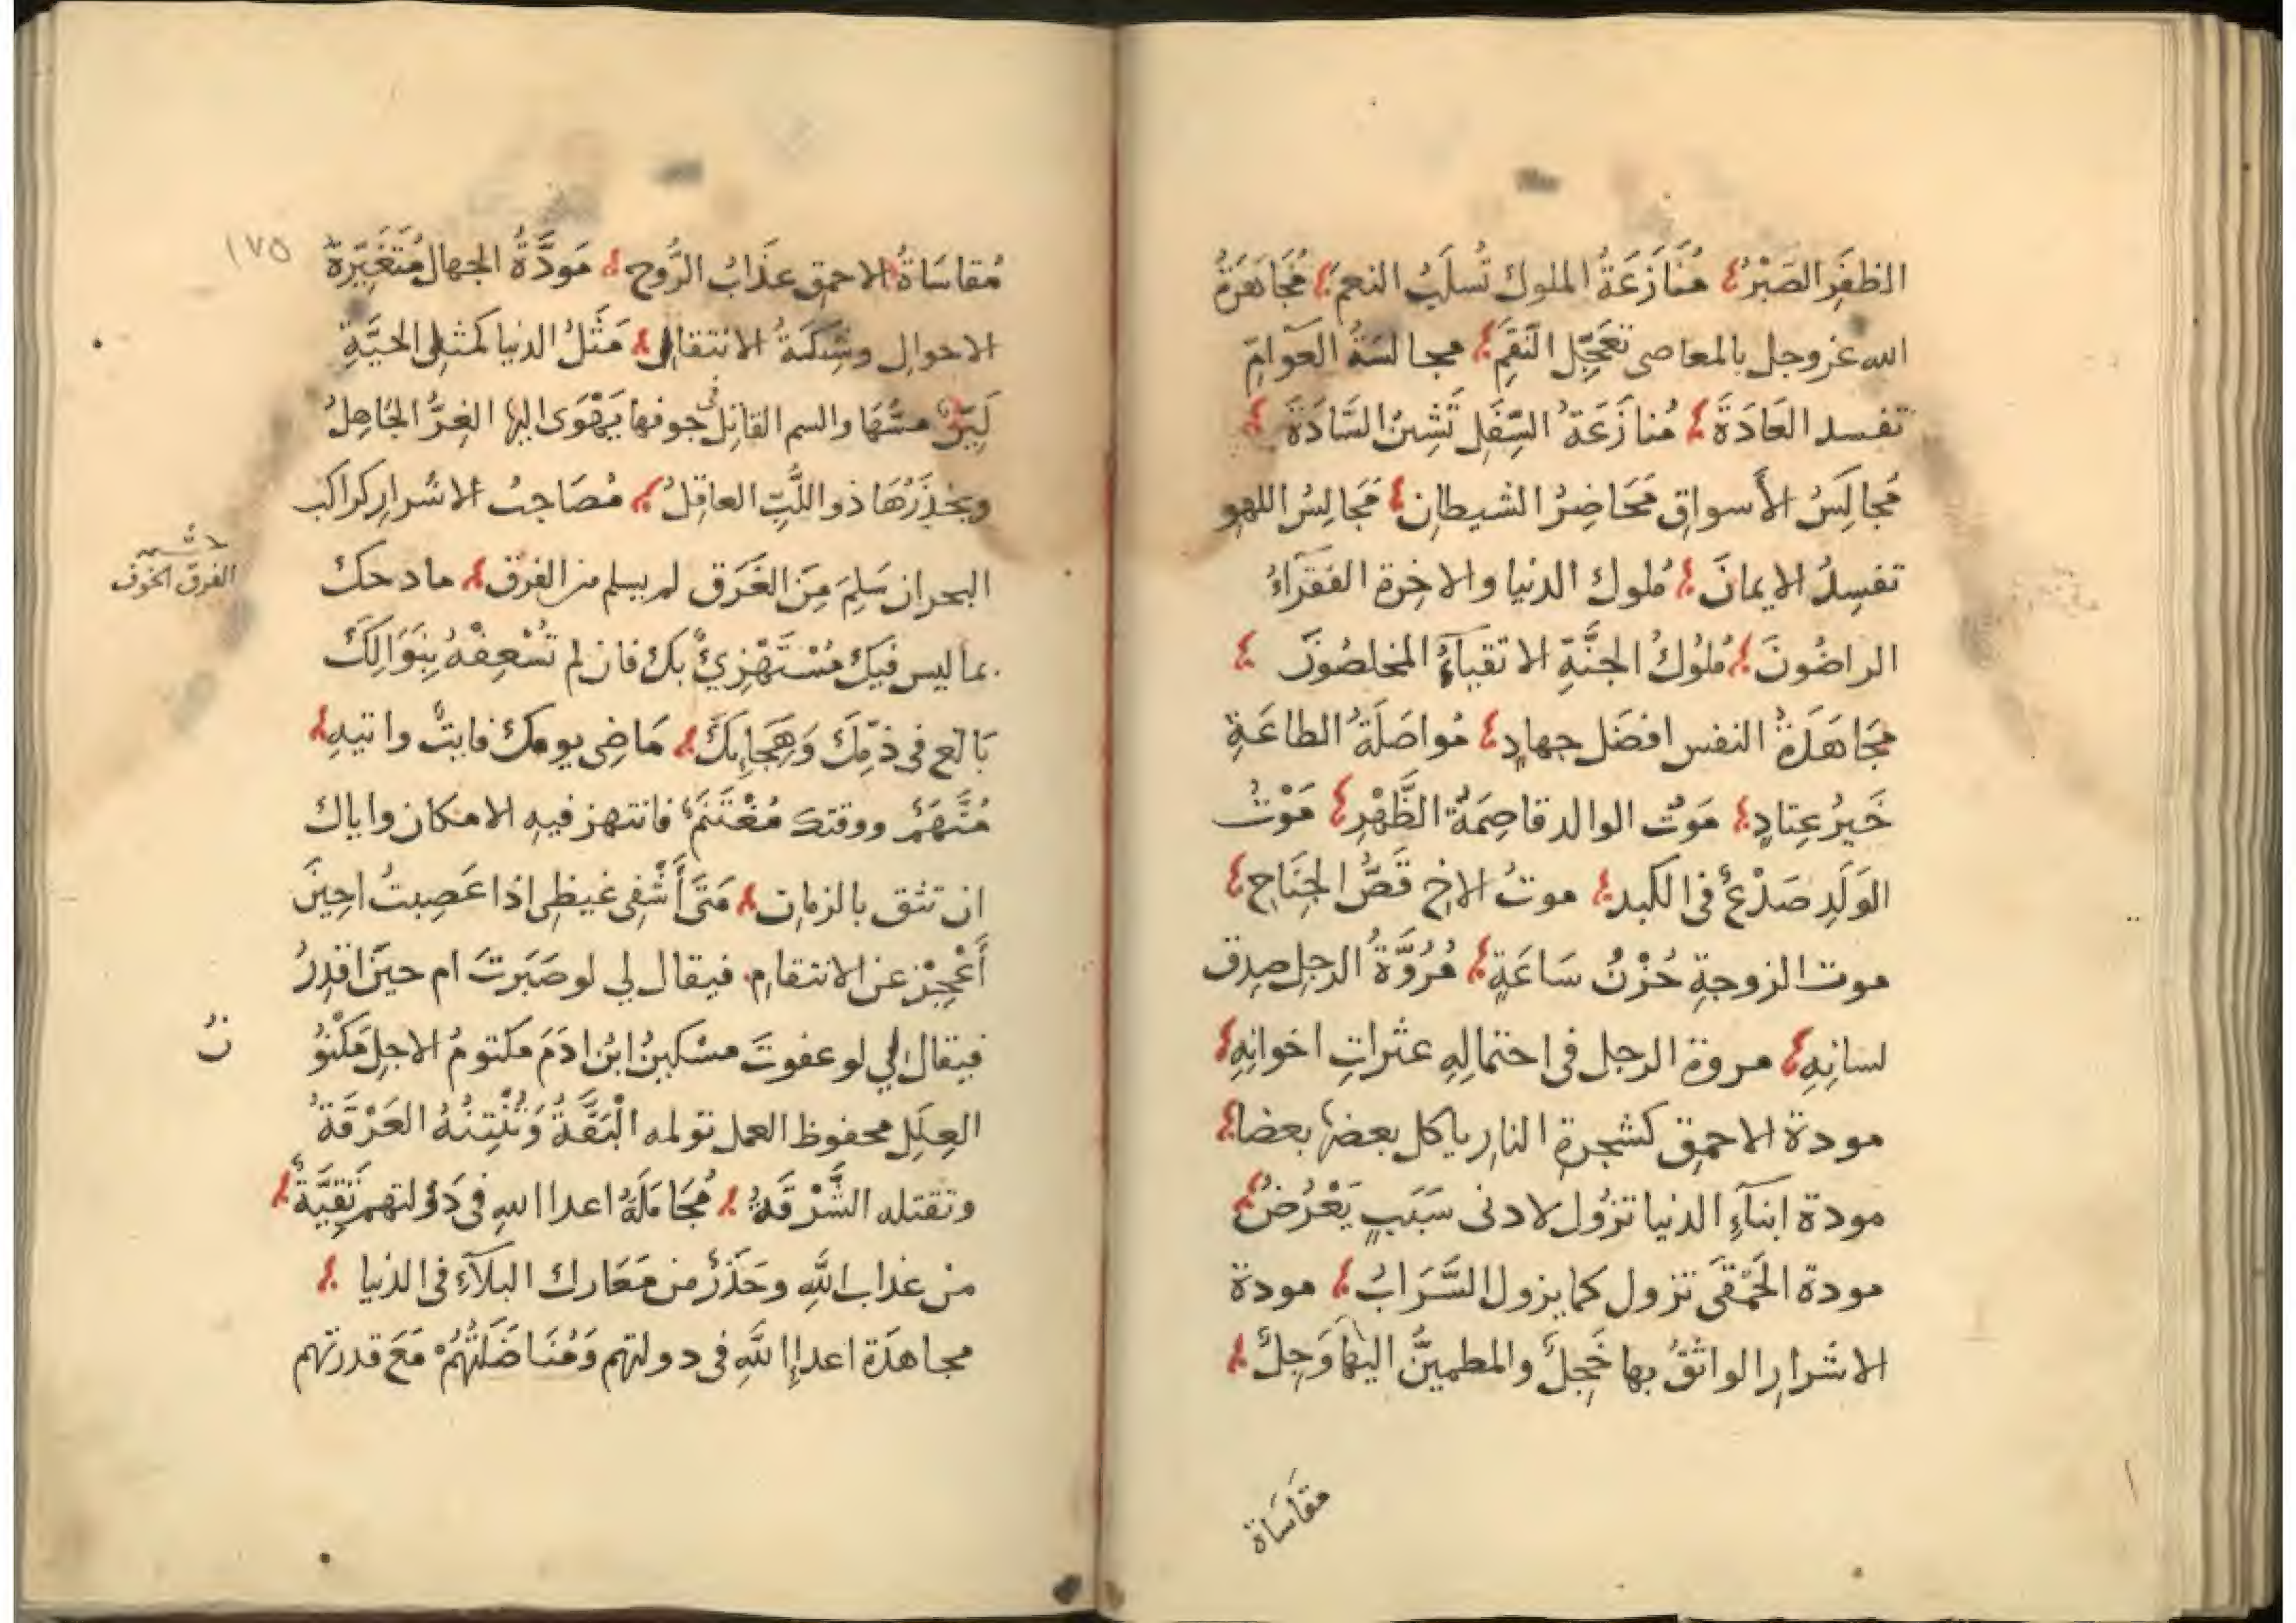 الظفَرِ الصَبْرُ مُنَازَعَةُ الملوك تُسلَبُ النعمَ مُجَاهَرَةُ
الله عز وجل بالمعاصى تعَجِّل النّقِمَ مجالسَةُ العَوامِّ
تفسد العَادَةَ مُنازَعَةُ السِّفَلِ تَشِينُ السَّادَةَ
مَجَالِسُ الأَسواقِ مَحَاضِرُ الشيطانِ مَجَالِسُ اللهوِ
تفسِدُ الايمانَ مُلوك الدنيا والاخِرة الفقرَاءُ
الراضُونَ مُلوُكُ الجنَّةِ الاتقيآءُ المخلصُونَ
مجَاهَدَةُ النفس افضَل جهادٍ مُواصَلَةُ الطاعَةِ
خَيرُ عِتادٍ مَوتُ الوالد قاصِمَةُ الظَّهْرِ مَوْتُ
الوَلَدِ صَدْعٌ فى الكبد موتُ الاخِ قَصُّ الجنَاحِ
موت الزوجةِ حُزْنُ سَاعَةٍ مُرُوَّةُ الرجلِ صِدق
لسانِهِ مروة الرجل فى احتمالِهِ عثراتِ اخوانِهِ
مودة الاحمقِ كشجرةِ النارِ ياكل بعضها بعضا
مودة ابنآءِ الدنيا تزُول لادنى سَبَبٍ يَعْرُضُ
مودة الحَمْقَى تزول كما يزول السَّرَابُ مودة
الاشرارِ الواثقُ بها خَجِلٌ والمطمينَّ اليها وَجِلٌ
مقاسَاة
١٧٥
مُقاسَاةُ الاحمقِ عذَابُ الرُّوحِ مَودَّةُ الجهال مُتَغَيِّرةُ
الاحوالِ وشِيكَةُ الانتقالِ مَثَلُ الدنيا كمثلِ الحيَّةِ
لَيِّنٌ مسُّهَا والسم القاتل فى جوفها يَهْوَى اليها الغِرُّ الجَاهِلُ
ويحْذَرُهَا ذو اللُّبِّ العاقِلُ مُصَاحِبُ الاشرارِ كراكبِ
البحر ان سَلِمَ مِنَ الغَرَق لم يسلم من الفرق مادحك
حاشية
الفرق الخوف
بما ليس فيك مُسْتَهْزِئٌ بك فان لم تُسْعِفْهُ بِنَوَالِكَ
بَالَغ فى ذَمِّكَ وَهِجَايِكَ مَاضِى يومك فايتٌ واتيهِ
مُتَّهَمٌ ووقتك مُغْتَنَمٌ فانتهز فيهِ الامكان واياك
ان تثق بالزمانِ مَتَى أَشْفِى غيظِى اذا غضِبتُ احِينَ
أَعْجِز عن الانتقامِ فيقال لي لو صَبَرتَ ام حينَ اقدِرُ
فيقال لي لو عفوتَ مسْكينُ ابنُ ادَمَ مكتومُ الاجلِ مَكْنُو
نُ
العِلَلِ محفوظ العمل تولمه الْبَقَّةُ وَتُنْتِنُهُ العَرْقَةُ
وتقتله الشَّرْقَةُ مُجَامَلَةُ اعدا اللهِ فى دَوْلتهم تَقِيَّةٌ
منْ عذاب اللَّهِ وحَذَرٌ من مَعَارك البلآءِ فى الدُنيا
مجاهدَة اعدا اللَّهِ فى دولتهم وَمُنَاضَلَتُهُمْ مَعَ قدرتهم